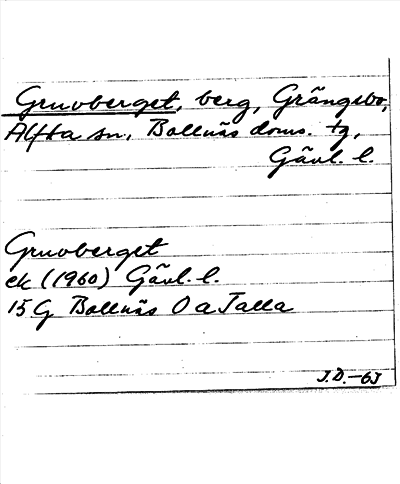 Gruvberget, berg, Grängsbo,
Alfta sn, Bollnäs doms. tg,
Gävl. l.
Gruvberget
ek (1960) Gävl. l.
15 G Bollnäs O a Talla
J.D.-63